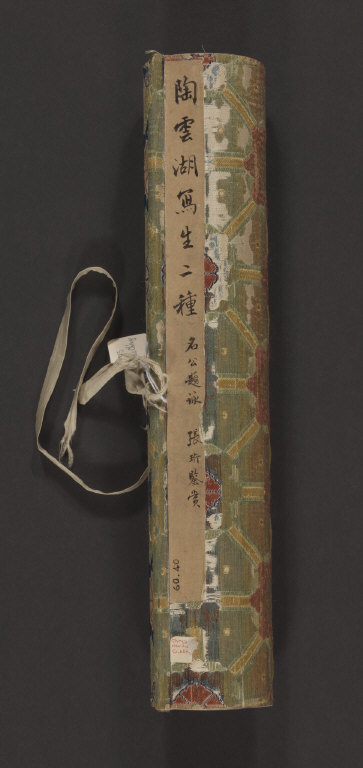 陶雲湖寫生二種 名公題詠 張珩鑒賞
60.40